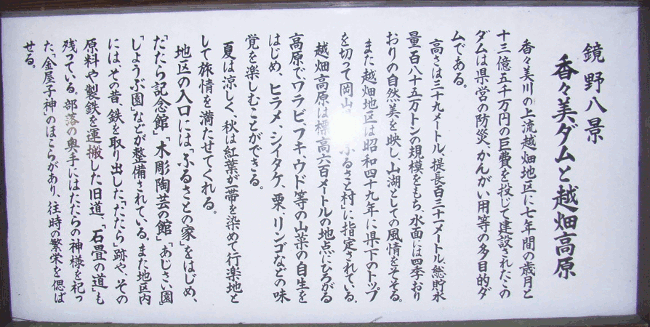 鏡野八景
香々美ダムと越畑高原
香々美川の上流越畑地区に七年間の歳月と
十三億五千万円の巨費を投じて建設されたこの
ダムは県営の防災、かんがい用等の多目的ダ
ムである。
高さは三十九メートル、提長百三十一メートル、総貯水
量百八十五万トンの規模をもち、水面には四季おり
おりの自然美を映し、山湖としての風情をそそる。
また越畑地区は昭和四十九年に県下のトップ
を切って岡山ふるさと村に指定されている。
越畑高原は標高六百メートルの地点にひろがる
高原で、ワラビ、フキ、ウド等の山菜の自生を
はじめ、ヒラメ、シイタケ、栗、リンゴなどの味
覚を楽しむことができる。
夏は涼しく、秋は紅葉が一帯を染めて行楽地と
して旅情を満たせてくれる。
地区の入口には、ふるさとの家をはじめ、
「たたら記念館」「木彫陶芸の館」「あじさい園」
「しょうぶ園」などが整備されている。また地区内
には、その昔、鉄を取り出した「たたら」跡や、その
原料や製鉄を運搬した旧道、「石畳の道」も
残っている。部落の奥手にはたたらの神様を祀っ
た、金屋子神のほこらがあり、往時の繁栄を偲ば
せる。